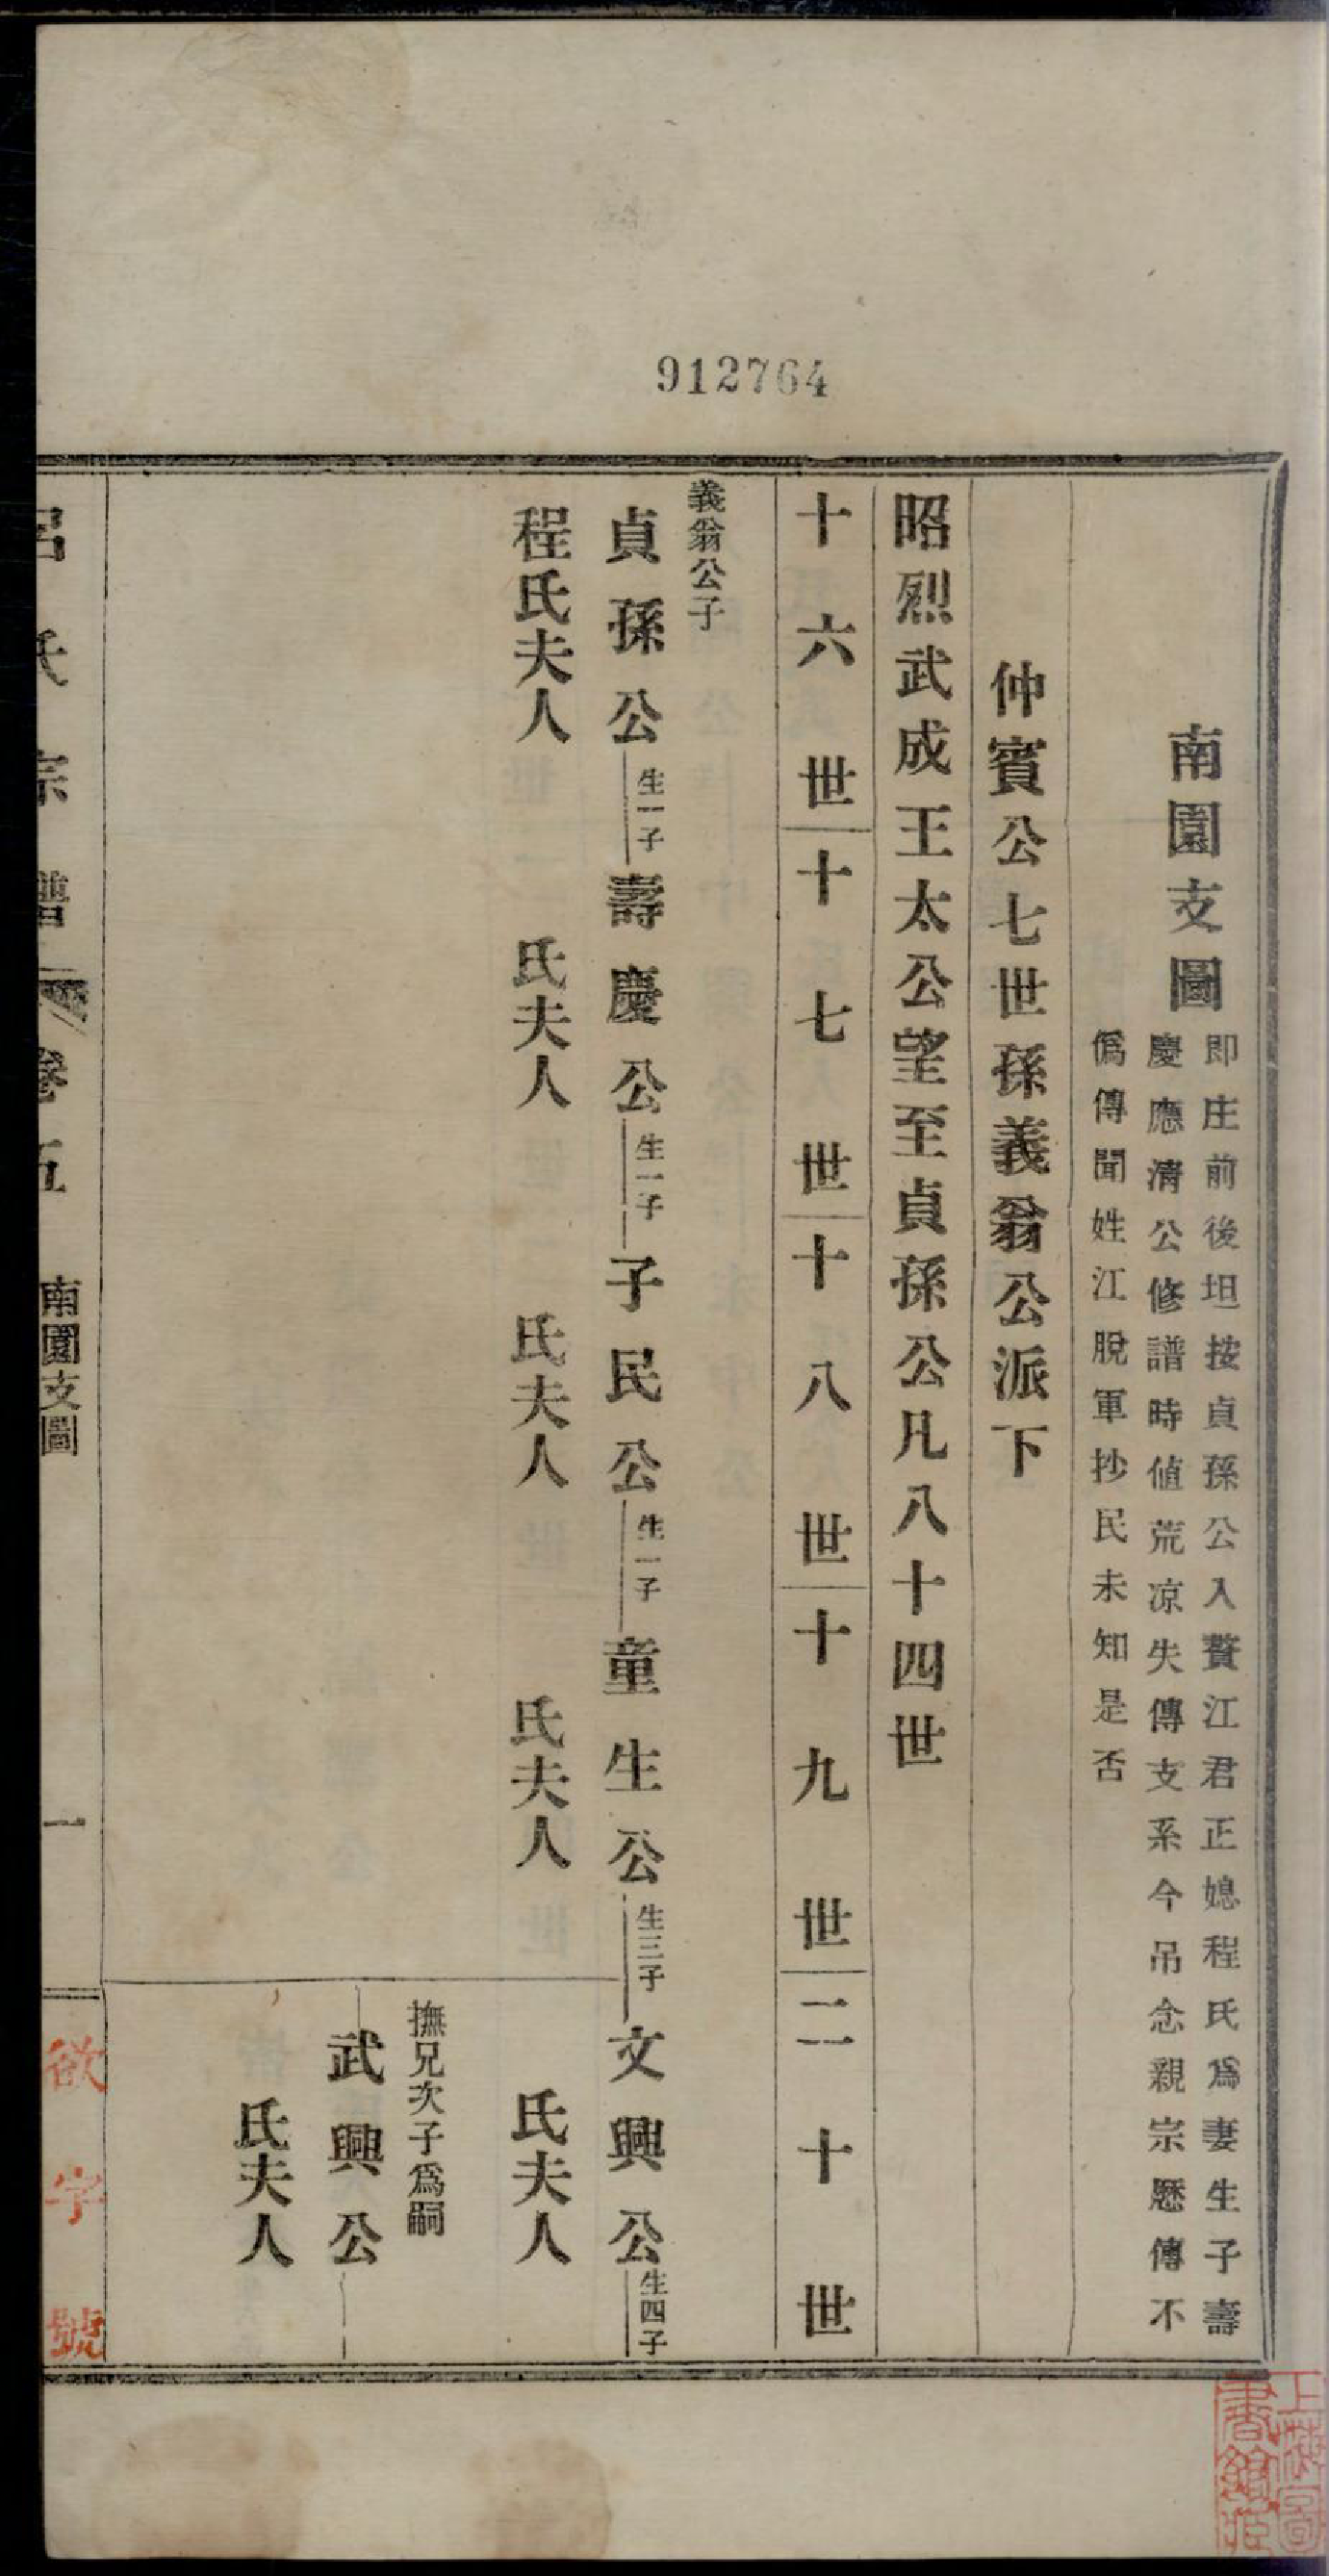 912764
南園支圖
即庄前後坦按貞孫公入贅江君正媳程氏爲妻生子壽
慶應清公修譜時値荒凉失傳支系今吊念親宗懸傳不
僞傳聞姓江脫軍抄民未知是否
仲賓公七世孫義翁公派下
昭烈武成王太公望至貞孫公凡八十四世
十六世 十七世 十八世 十九世 二十世
義翁公子
貞孫公 生一子 壽慶公 生一子 子民公 生一子 童生公 生三子 文興公 生四子
程氏夫人 氏夫人 氏夫人 氏夫人 氏夫人
撫兄次子爲嗣
武興公
氏夫人
呂氏宗譜 卷五 南園支圖 一
欲字號
上海圖書館藏